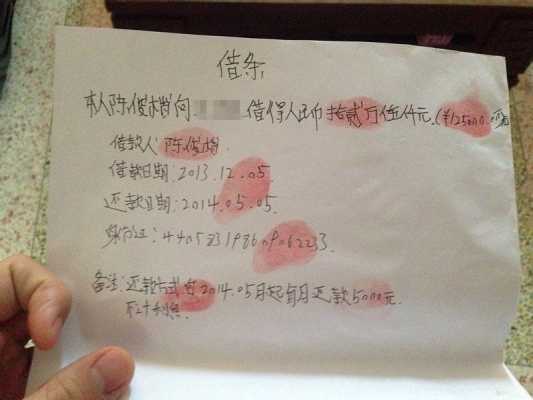 借条
本人陈俊楷向 借得人民币拾贰万伍仟元.(¥125000.00元
借款人:陈俊楷.
借款日期:2013.12.05.
还款日期:2014.05.05.
身份证:440523198609062233.
备注:还款方式自2014.05月起每月还款5000元.
不计利息.